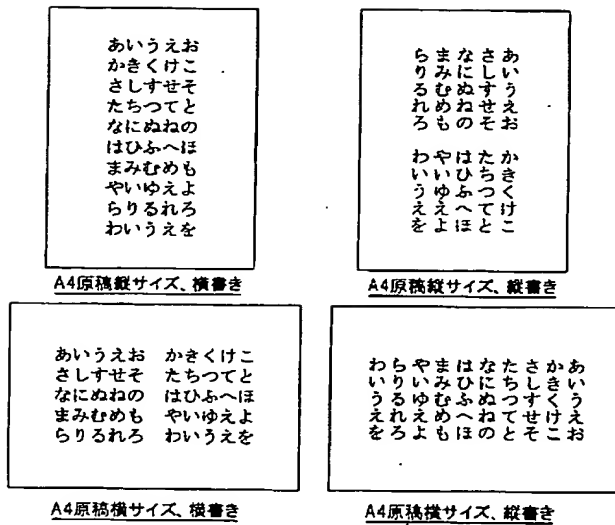 あいうえお
かきくけこ
さしすせそ
たちつてと
なにぬねの
はひふへほ
まみむめも
やいゆえよ
らりるれろ
わいうえを
A4原稿縦サイズ、横書き
あいうえお
さしすせそ
なにぬねの
まみむめも
らりるれろ
かきくけこ
たちつてと
はひふへほ
やいゆえよ
わいうえを
A4原稿縦サイズ、縦書き
あいうえお かきくけこ
さしすせそ たちつてと
なにぬねの はひふへほ
まみむめも やいゆえよ
らりるれろ わいうえを
A4原稿横サイズ、横書き
あいうえお
かきくけこ
さしすせそ
たちつてと
なにぬねの
はひふへほ
まみむめも
やいゆえよ
らりるれろ
わいうえを
A4原稿横サイズ、縦書き